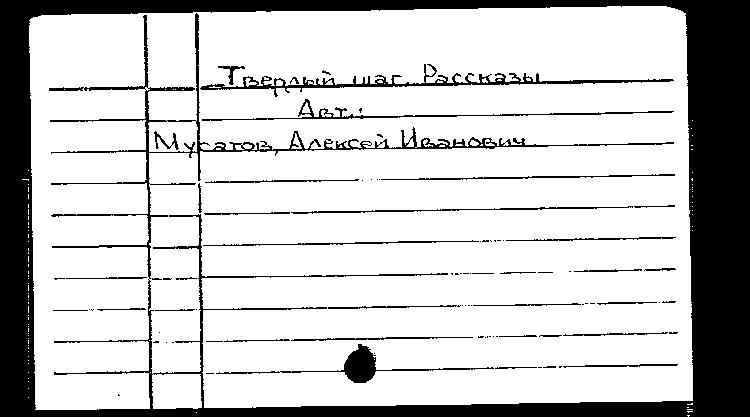 Твердый шаг. Рассказы
Авт.:
Мусатов, Алексей Иванович